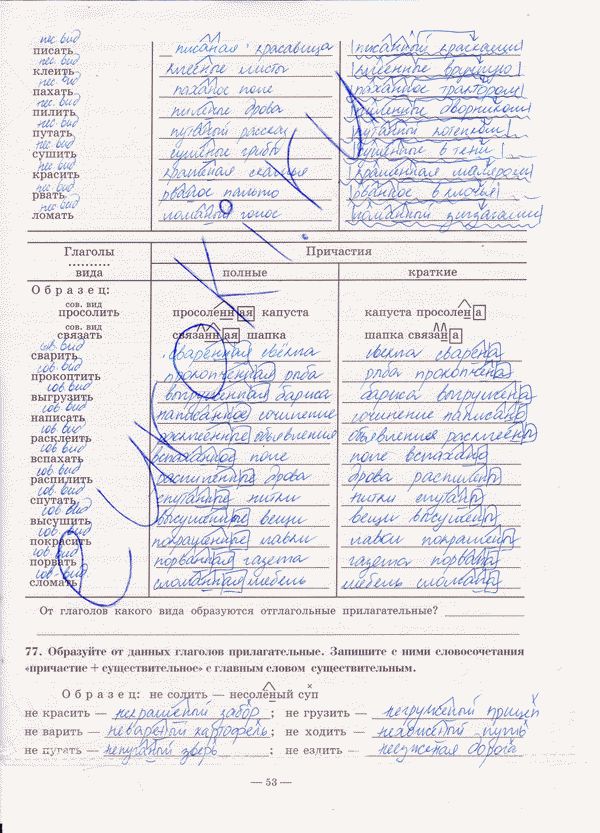 нес. вид
писать писаная красавица писанный красками
клеить клееные листы клеенные вручную
нес. вид
пахать паханое поле паханное трактором
нес. вид
пилить пиленые дрова пиленные дворником
нес. вид
путать путаный рассказ путанный котенком
нес. вид
сушить сушеные грибы сушенные в тени
нес. вид
красить крашеная скамья крашенная маляром
нес. вид
рвать рваное пальто рванное в клочья
нес. вид
ломать ломаный голос ломанный зигзагами
Глаголы Причастия
.........
вида полные краткие
Образец:
сов. вид
просолить просоленная капуста капуста просолена
сов. вид
связать связанная шапка шапка связана
сов. вид
сварить сваренная свекла свекла сварена
сов. вид
прокоптить прокопченная рыба рыба прокопчена
сов. вид
выгрузить выгруженная баржа баржа выгружена
сов. вид
написать написанное сочинение сочинение написано
сов. вид
расклеить расклеенные объявления объявления расклеены
сов. вид
вспахать вспаханное поле поле вспахано
сов. вид
распилить распиленные дрова дрова распилены
сов. вид
спутать спутанные нитки нитки спутаны
сов. вид
высушить высушенные вещи вещи высушены
сов. вид
покрасить покрашенные лавки лавки покрашены
сов. вид
порвать порванная газета газета порвана
сов. вид
сломать сломанная мебель мебель сломана
От глаголов какого вида образуются отглагольные прилагательные?
77. Образуйте от данных глаголов прилагательные. Запишите с ними словосочетания
«причастие + существительное» с главным словом существительным.
Образец: не солить — несоленый суп
не красить — некрашеный забор; не грузить — негруженый прицеп
не варить — невареный картофель; не ходить — нехоженый путь
не пугать — непуганый зверь; не ездить — неезженая дорога
— 53 —